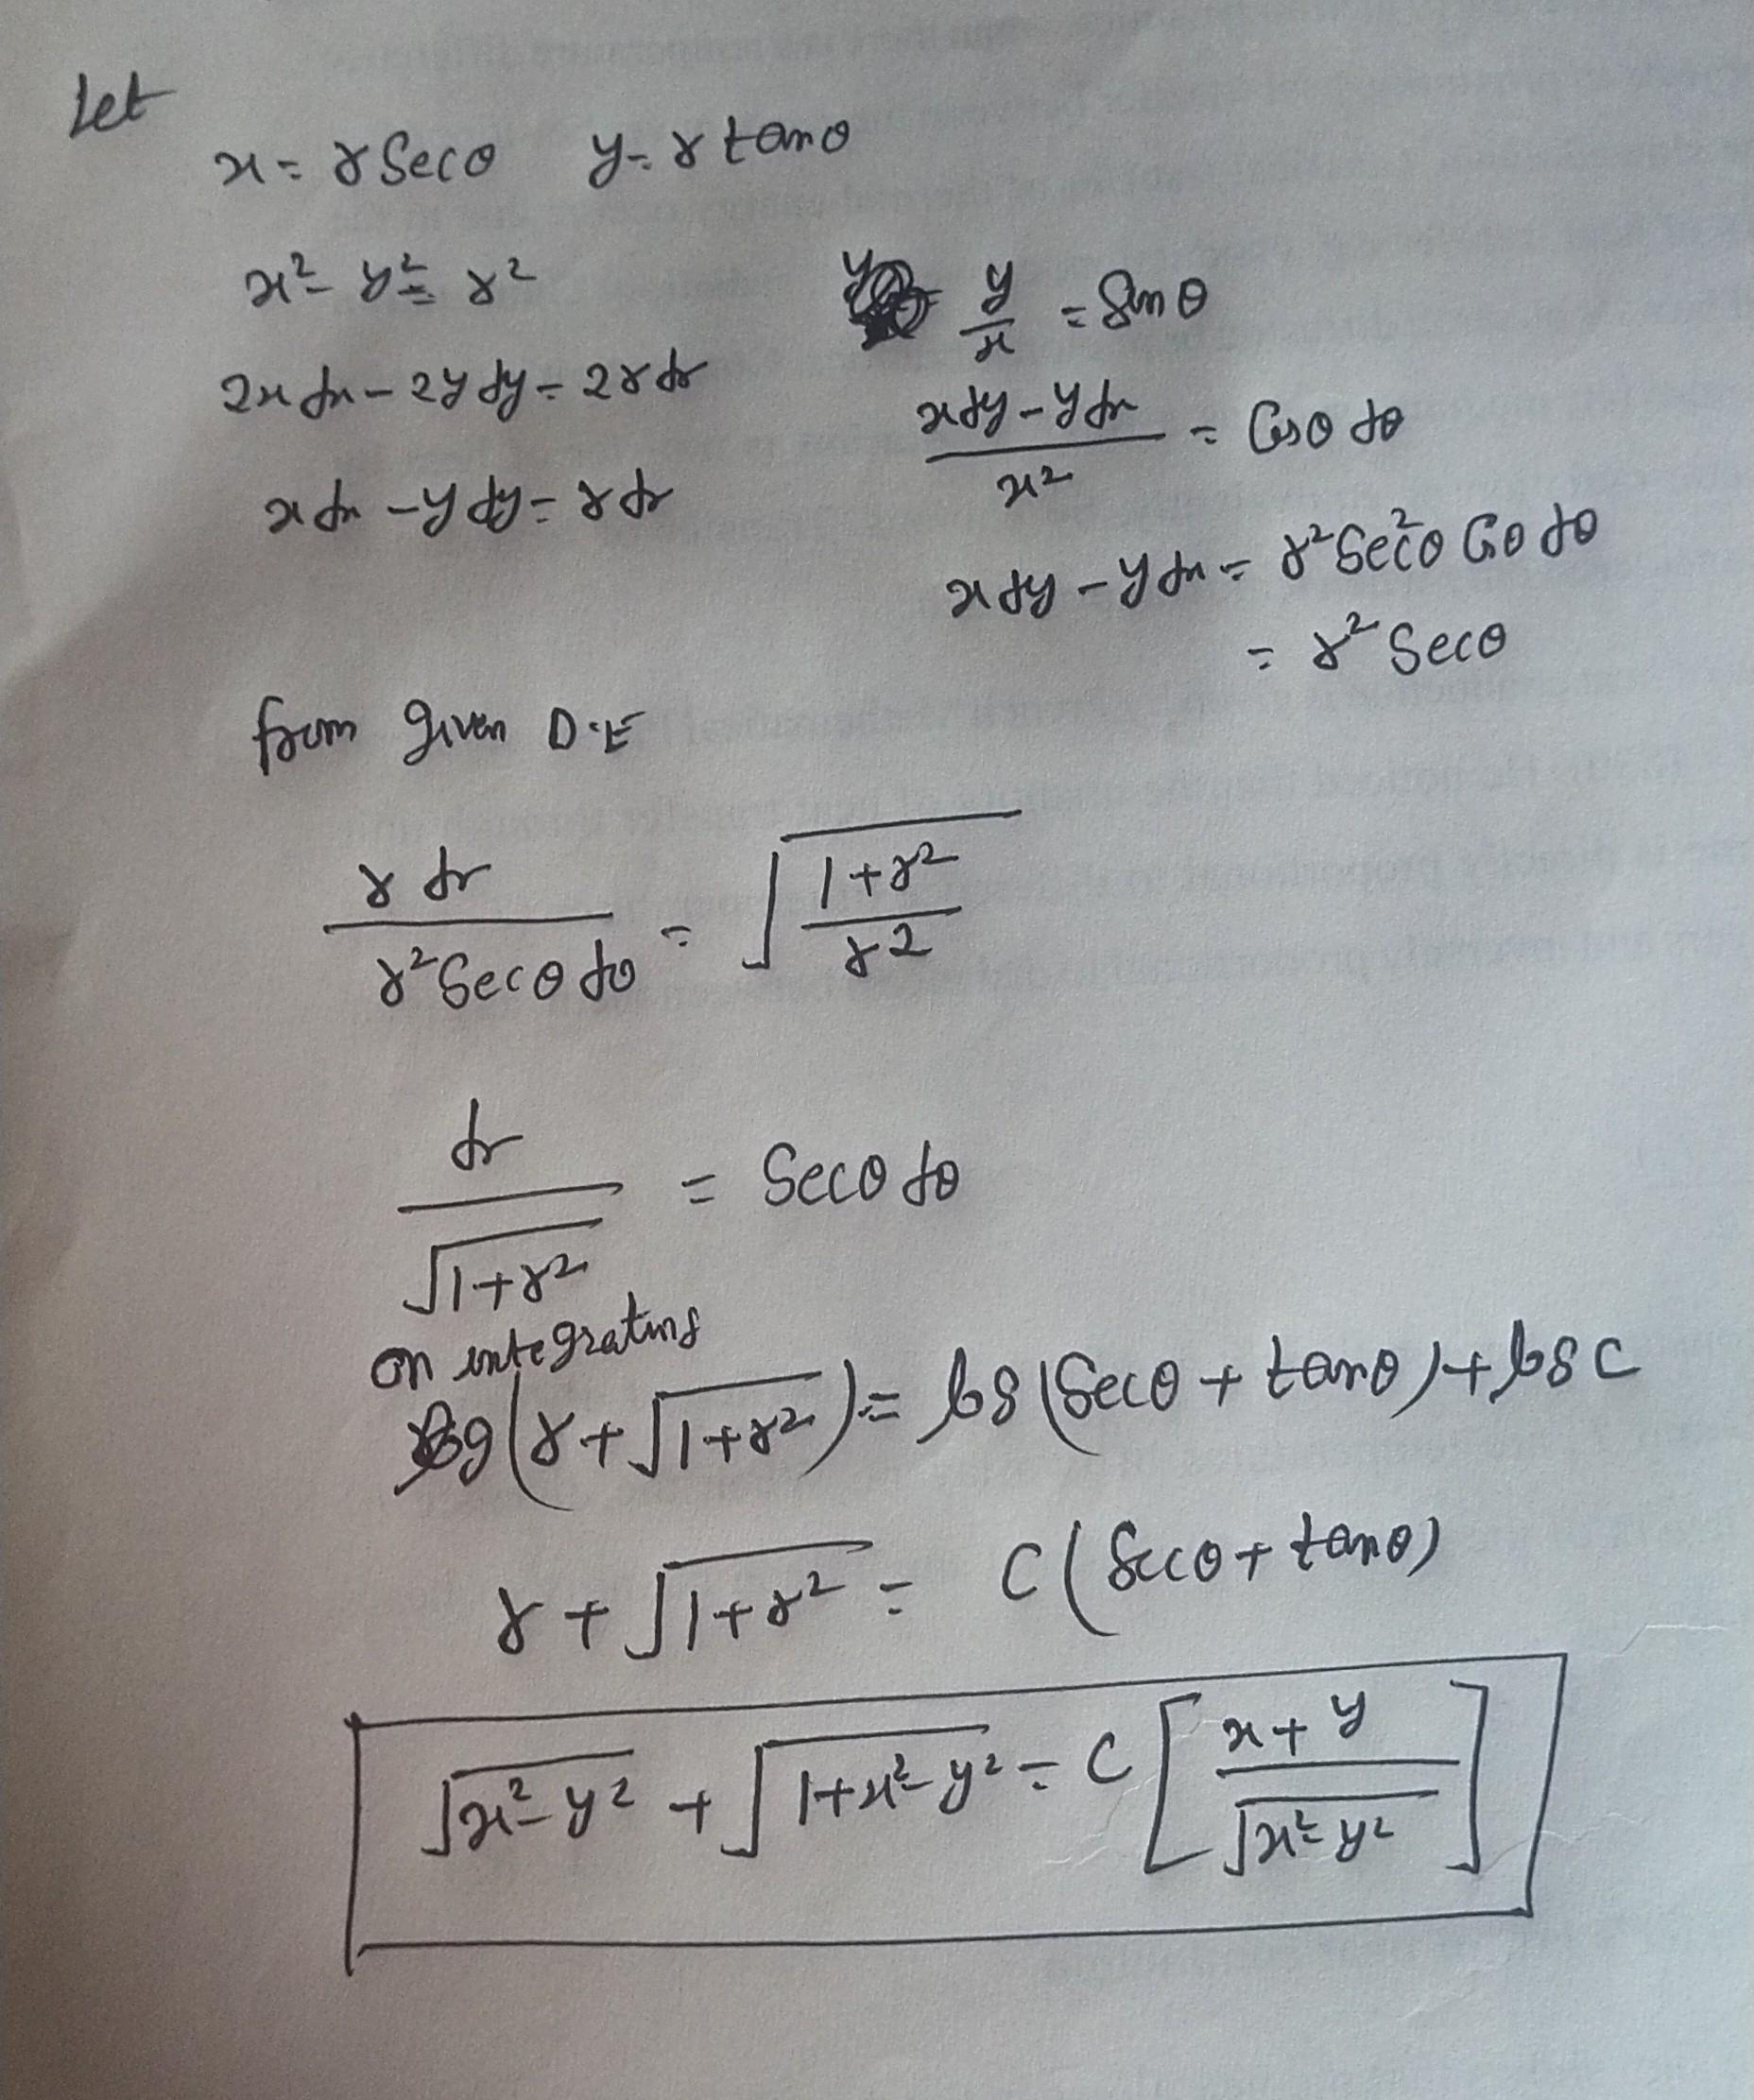 Let
x = r Secθ y = r tanθ
x² - y² = r²
2x dx - 2y dy = 2r dr
x dx - y dy = r dr
y/x = Sinθ
(x dy - y dx)/x² = Cosθ dθ
x dy - y dx = r² Sec²θ Cosθ dθ
= r² Secθ
from given D.E
r dr/(r² Secθ dθ) = √((1+r²)/r²)
dr/√(1+r²) = Secθ dθ
on integrating
log(r + √(1+r²)) = log(Secθ + tanθ) + log C
r + √(1+r²) = C(Secθ + tanθ)
√(x²-y²) + √(1+x²-y²) = C[(x+y)/√(x²-y²)]